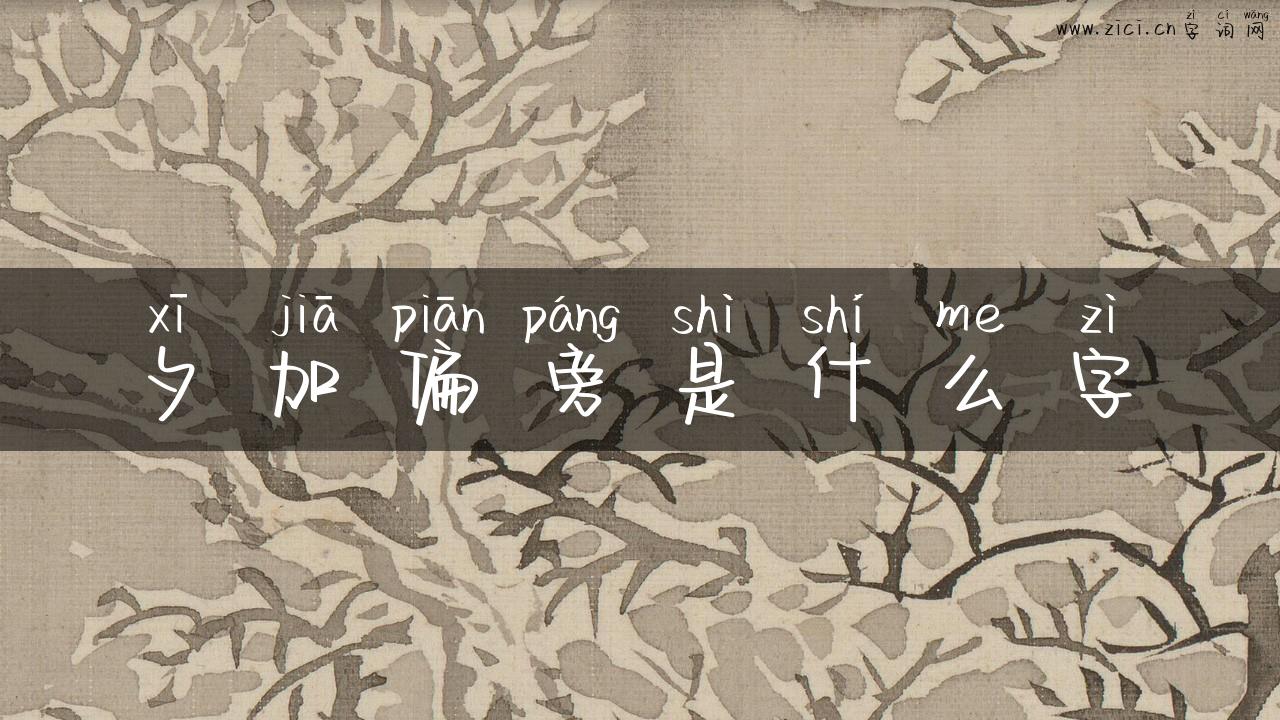 zì cí wǎng
www.zici.cn字词网
xī jiā piān páng shì shí me zì
夕加偏旁是什么字